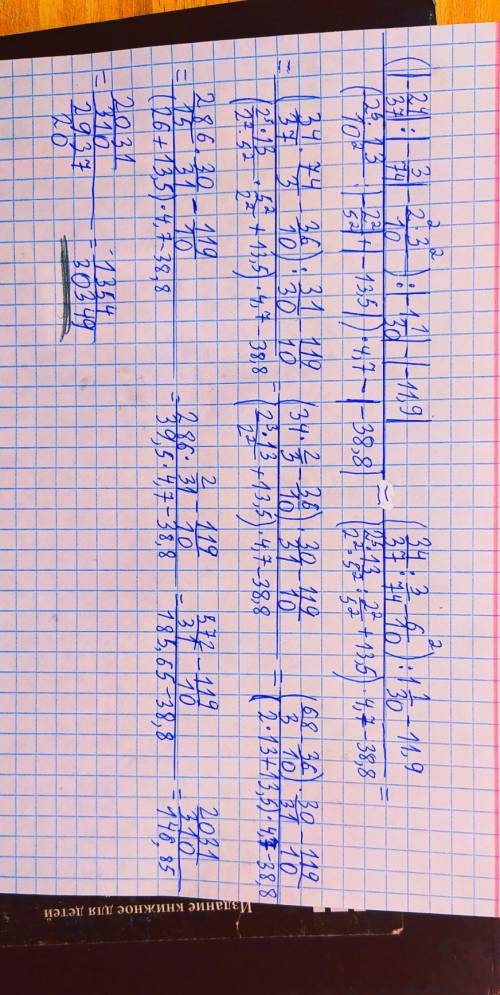 (|-34/37| : |-3/74| - 2²·3²/10) : |-1 1/30| - |-11,9| / (2⁵·13/10² : |-2²/5²| + |-13,5|)·4,7 - |-38,8| = (34/37 : 3/74 - 6²/10) : 1 1/30 - 11,9 / (2⁵·13/2²·5² : 2²/5² + 13,5)·4,7 - 38,8 =
= (34/37 · 74/3 - 36/10) : 31/30 - 119/10 / (2⁵·13/2²·5² · 5²/2² + 13,5)·4,7 - 38,8 = (34 · 2/3 - 36/10) · 30/31 - 119/10 / (2³·13/2² + 13,5)·4,7 - 38,8 = (68/3 - 36/10) · 30/31 - 119/10 / (2·13+13,5)·4,7 - 38,8
= 286/15 · 30/31 - 119/10 / (26+13,5)·4,7 - 38,8 = 286 · 2/31 - 119/10 / 39,5·4,7 - 38,8 = 572/31 - 119/10 / 185,65 - 38,8 = 2031/310 / 146,85
= 2031/310 / 2937/20 = 1354/30349
Издание книжное для детей